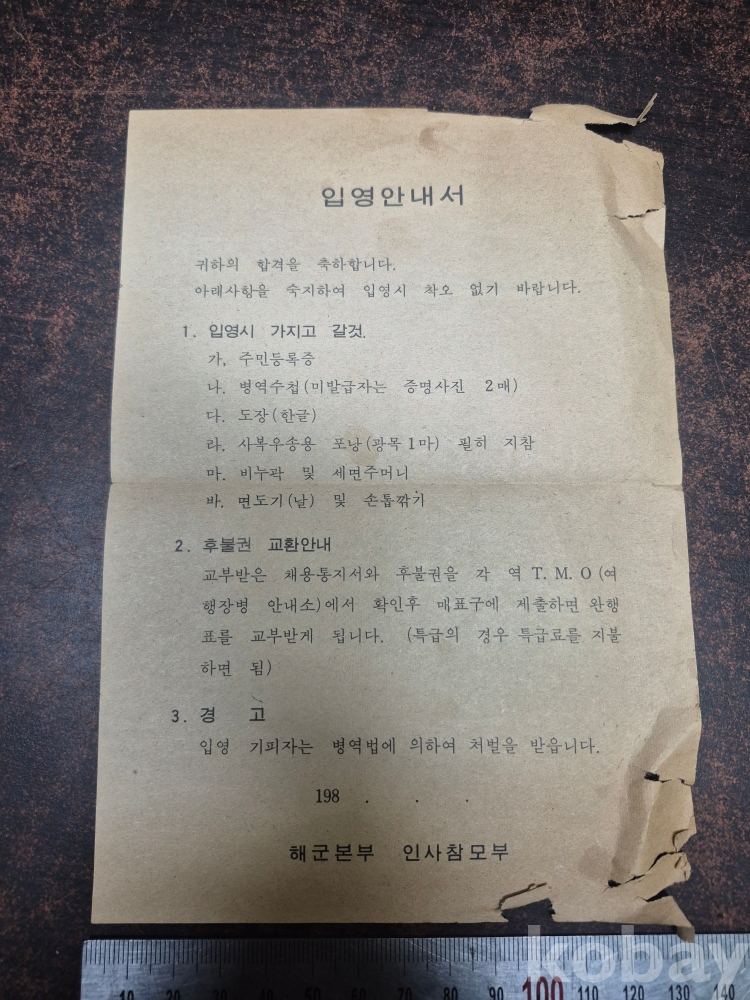 입영안내서
귀하의 합격을 축하합니다.
아래사항을 숙지하여 입영시 착오 없기 바랍니다.
1. 입영시 가지고 갈것.
가. 주민등록증
나. 병역수첩(미발급자는 증명사진 2매)
다. 도장(한글)
라. 사복우송용 포낭(광목1마) 필히 지참
마. 비누곽 및 세면주머니
바. 면도기(날) 및 손톱깎기
2. 후불권 교환안내
교부받은 채용통지서와 후불권을 각 역 T. M. O (여
행장병 안내소)에서 확인후 매표구에 제출하면 완행
표를 교부받게 됩니다. (특급의 경우 특급료를 지불
하면 됨)
3. 경 고
입영 기피자는 병역법에 의하여 처벌을 받읍니다.
198 . . .
해군본부 인사참모부
kobay
10 20 30 40 50 60 70 80 90 100 110 120 130 140